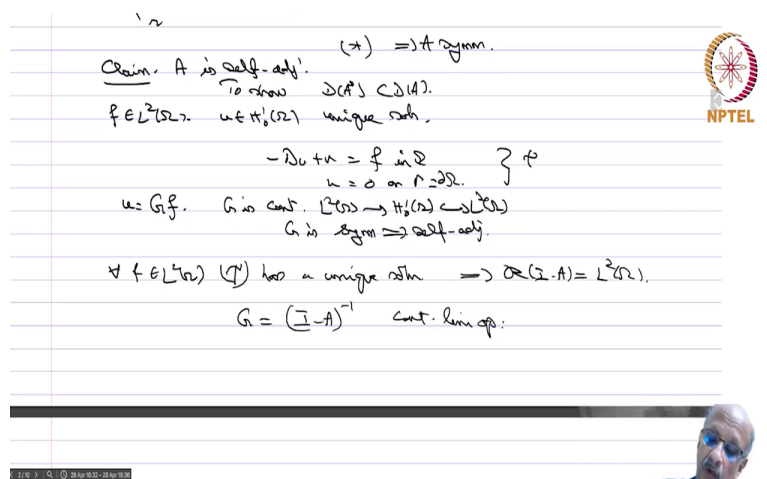 (*) ⇒ A symm.
Claim. A is self-adj.
To show D(A*) ⊂ D(A).
f ∈ L²(Ω). u ∈ H₀¹(Ω) unique soln.
-Δu + u = f in Ω
u = 0 on Γ = ∂Ω. } (P)
u = Gf. G is cont. L²(Ω) → H₀¹(Ω) ↪ L²(Ω)
G is symm ⇒ self-adj.
∀ f ∈ L²(Ω) (P) has a unique soln ⇒ R(I-A) = L²(Ω).
G = (I-A)⁻¹ cont. lin op.
NPTEL
2/10 28 Apr 18:32 – 28 Apr 18:36